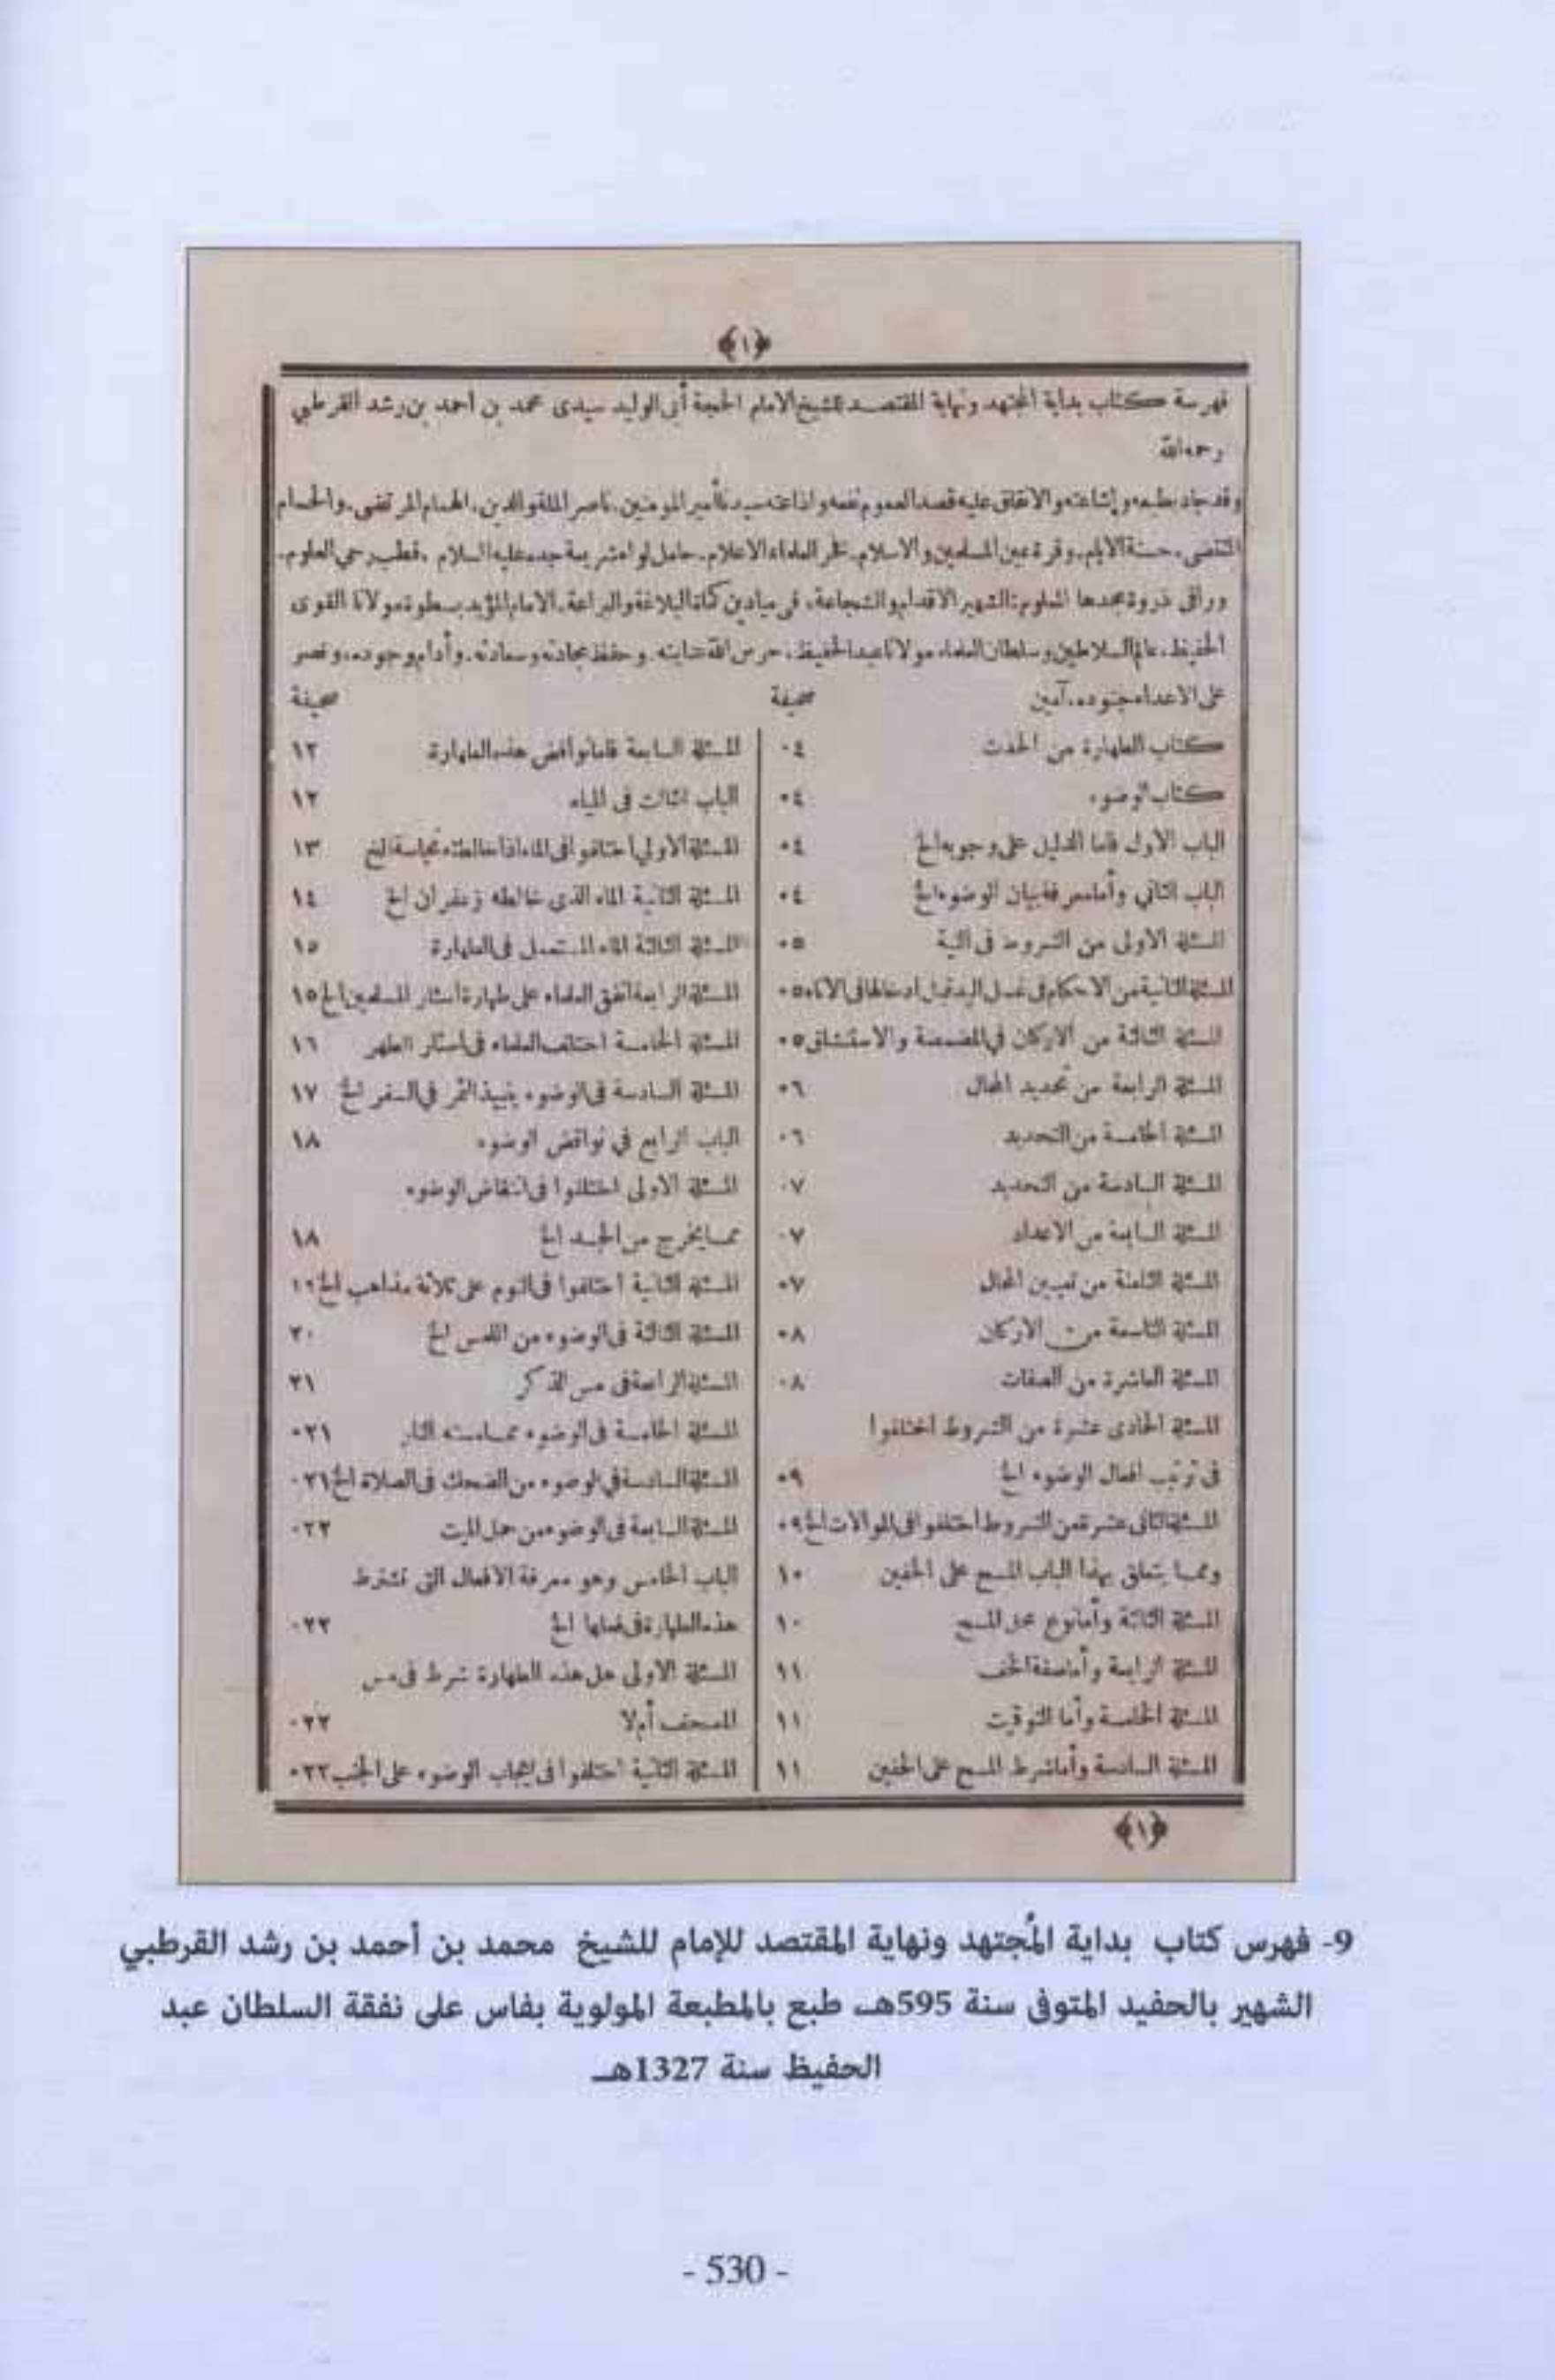 ﴿١﴾
فهرسة كتاب بداية المجتهد ونهاية المقتصد للشيخ الامام الحجة أبى الوليد سيدى محمد بن احمد بن رشد القرطبي
رحمه الله
وقد جاد بطبعه وإشاعته والانفاق عليه قصد العموم نفعه واذاعته سيدنا أمير المومنين. ناصر الملة والدين. الهمام المرتضى. والحسام
المنتضى. حسنة الايام. وقرة عين المسلمين والاسلام. فخر العلماء الاعلام. حامل لواء شريعة جده عليه السلام. قطب رحى العلوم.
وراقى ذروة مجدها المعلوم: الشهير الاقدام والشجاعة. فى ميادين كماة البلاغة والبراعة. الامام المؤيد بسطوة مولانا القوى
الحفيظ. عالم السلاطين وسلطان العلماء مولانا عبد الحفيظ. حرس الله عنايته. وحفظ مجادته وسعادته. وأدام وجوده. ونصر
على الاعداء جنوده. آمين
صحيفة
صحيفة
كتاب الطهارة من الحدث ٠٤
كتاب الوضوء ٠٤
الباب الاول فاما الدليل على وجوبه الخ ٠٤
الباب الثاني وأما معرفة بيان الوضوء الخ ٠٤
المسئلة الاولى من الشروط فى النية ٠٥
المسئلة الثانية من الاحكام فى غسل اليد قبل ادخالها فى الاناء ٠٥
المسئلة الثالثة من الاركان في المضمضة والاستنشاق ٠٥
المسئلة الرابعة من تحديد المحال ٠٦
المسئلة الخامسة من التحديد ٠٦
المسئلة السادسة من التحديد ٠٧
المسئلة السابعة من الاعداد ٠٧
المسئلة الثامنة من تعيين المحال ٠٧
المسئلة التاسعة من الاركان ٠٨
المسئلة العاشرة من الصفات ٠٨
المسئلة الحادى عشرة من الشروط اختلفوا
فى ترتيب افعال الوضوء الخ ٠٩
المسئلة الثانى عشرة من الشروط اختلفوا فى الموالات الخ ٠٩
ومما يتعلق بهذا الباب المسح على الخفين ١٠
المسئلة الثالثة وأما نوع محل المسح ١٠
المسئلة الرابعة وأما صفة الخف ١١
المسئلة الخامسة وأما التوقيت ١١
المسئلة السادسة وأما شرط المسح على الخفين ١١
المسئلة السابعة فاما نواقض هذه الطهارة ١٢
الباب الثالث فى المياه ١٢
المسئلة الاولي اختلفوا فى الماء اذا خالطته نجاسة الخ ١٣
المسئلة الثانية الماء الذى خالطه زعفران الخ ١٤
المسئلة الثالثة الماء المستعمل فى الطهارة ١٥
المسئلة الرابعة اتفق العلماء على طهارة اسئار المسلمين الخ ١٥
المسئلة الخامسة اختلف العلماء فى اسئار الطهر ١٦
المسئلة السادسة فى الوضوء بنبيذ التمر في السفر الخ ١٧
الباب الرابع في نواقض الوضوء ١٨
المسئلة الاولى اختلفوا فى انتقاض الوضوء
مما يخرج من الجسد الخ ١٨
المسئلة الثانية اختلفوا فى النوم على ثلاثة مذاهب الخ ١٩
المسئلة الثالثة فى الوضوء من اللمس الخ ٢٠
المسئلة الرابعة فى مس الذكر ٢١
المسئلة الخامسة فى الوضوء مما مسته النار ٠٢١
المسئلة السادسة في الوضوء من الضحك فى الصلاة الخ ٠٢١
المسئلة السابعة فى الوضوء من حمل الميت ٠٢٢
الباب الخامس وهو معرفة الافعال التى تشترط
هذه الطهارة فى فعلها الخ ٠٢٢
المسئلة الاولى هل هذه الطهارة شرط فى مس
المصحف أم لا ٠٢٢
المسئلة الثانية اختلفوا فى ايجاب الوضوء على الجنب ٠٢٢
﴿١﴾
9- فهرس كتاب بداية المُجتهد ونهاية المقتصد للإمام للشيخ محمد بن أحمد بن رشد القرطبي
الشهير بالحفيد المتوفى سنة 595هـ طبع بالمطبعة المولوية بفاس على نفقة السلطان عبد
الحفيظ سنة 1327هـ
- 530 -